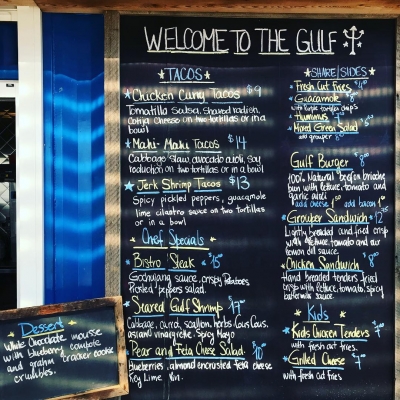 WELCOME TO THE GULF
TACOS
Chicken Curry Tacos $9
Tomatilla Salsa, Shaved radish,
Cotija Cheese on two tortillas or in a
bowl
Mahi-Mahi Tacos $14
Cabbage slaw avocado aioli, Soy
reduction on two tortillas or in a
bowl
Jerk Shrimp Tacos $13
Spicy pickled peppers, guacamole
lime cilantro sauce on two tortillas
or in a bowl
Chef Specials
Bistro Steak $15
Gochujang sauce, crispy Potatoes
Pickled peppers salad
Seared Gulf Shrimp $17
Cabbage, carrot, scallion, herbs Cous Cous,
asian vinaigrette, Spicy Mayo
Pear and feta Cheese Salad $10
Blueberries, almond encrusted feta cheese
Key Lime Vin.
SHARE/SIDES
Fresh Cut Fries $4
Guacamole
with tortilla chips
Hummus
Mixed Green Salad
add grouper
Gulf Burger $8
100% Natural beef on brioche
bun with lettuce, tomato and
garlic aioli
add cheese add bacon
Grouper Sandwich
Lightly breaded and fried crisp
with lettuce, tomato and our
lemon dill sauce.
Chicken Sandwich $8
Hand breaded tenders fried
crisp with lettuce, tomato, spicy
buttermilk sauce
Kids
Kids Chicken Tenders $7
with fresh cut fries.
Grilled Cheese
with fresh cut fries
Dessert
White Chocolate mousse
with blueberry compote
and grahm cracker cookie
crumbles.